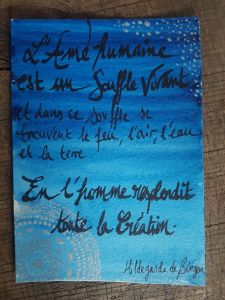 L'Âme humaine
est un Souffle Vivant
et dans ce souffle se
trouvent le feu, l'air, l'eau
et la terre.
En l'homme resplendit
toute la Création.
Hildegarde de Bingen